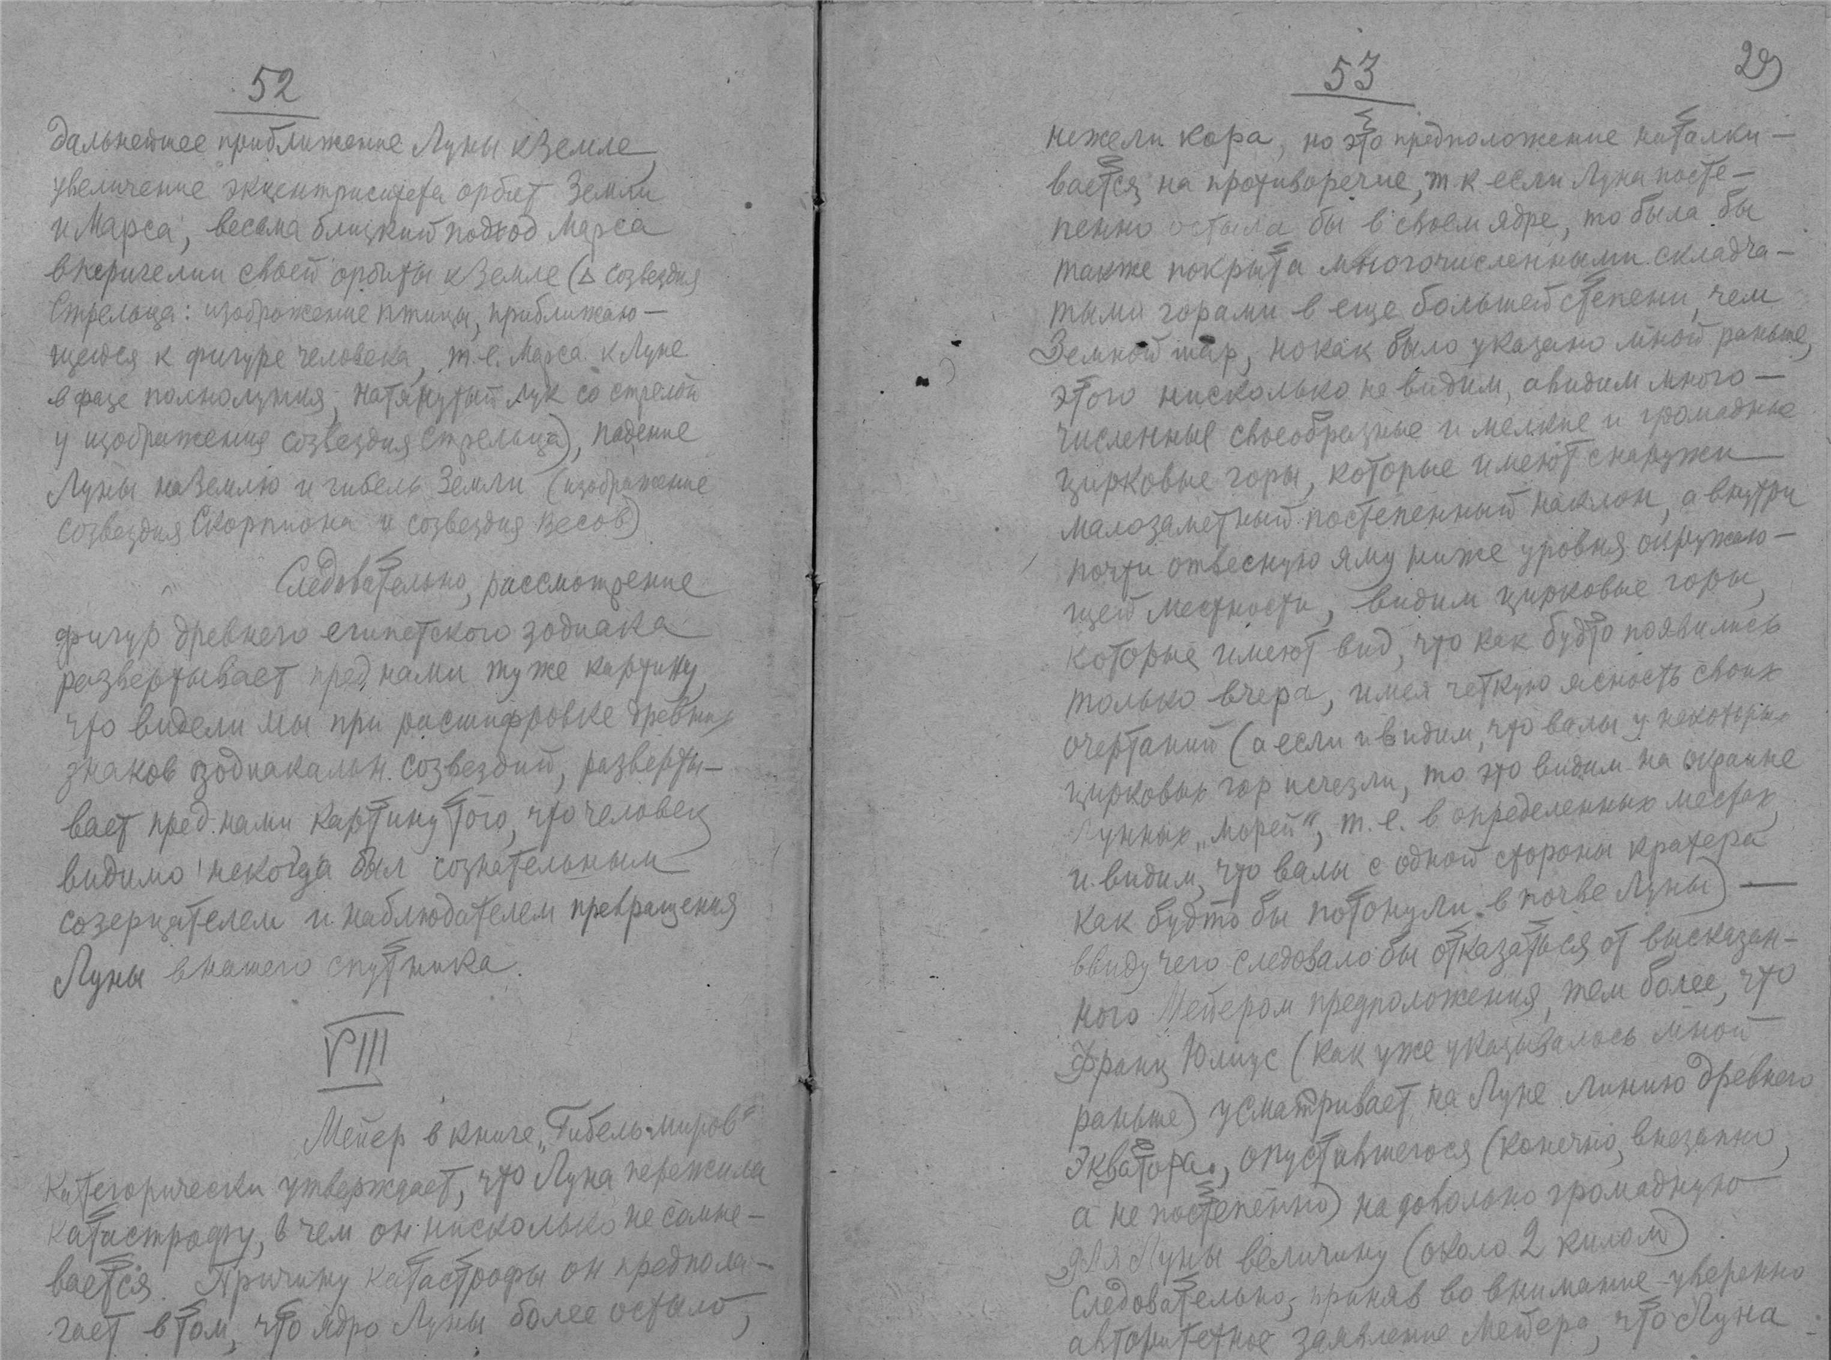 52
дальнейшее приближение Луны к Земле,
увеличение эксцентриситета орбит Земли
и Марса, весьма близкий подход Марса
в перигелии своей орбиты к Земле (Δ созвездия
Стрельца: изображение птицы, приближаю-
щейся к фигуре человека, т.е. Марса к Луне
в фазе полнолуния, натянутый лук со стрелой
у изображения созвездия Стрельца), падение
Луны на Землю и гибель Земли (изображение
созвездия Скорпиона и созвездия Весов)
Следовательно, рассмотрение
фигур древнего египетского зодиака
развертывает пред нами ту же картину,
что видели мы при расшифровке древних
знаков зодиакальн. созвездий, разверты-
вает пред нами картину того, что человек
видимо некогда был сознательным
созерцателем и наблюдателем превращения
Луны в нашего спутника.
VIII
Мейер в книге „Гибель миров"
категорически утверждает, что Луна пережила
катастрофу, в чем он нисколько не сомне-
вается. Причину катастрофы он предпола-
гает в том, что ядро Луны более остыло,
53
29
нежели кора, но это предположение наталки-
вается на противоречие, т.к. если Луна посте-
пенно остыла бы в своем ядре, то была бы
также покрыта многочисленными складча-
тыми горами в еще большей степени, чем
Земной шар, но как было указано мной раньше,
этого нисколько не видим, а видим много-
численные своеобразные и мелкие и громадные
цирковые горы, которые имеют снаружи
малозаметный постепенный наклон, а внутри
почти отвесную яму ниже уровня окружаю-
щей местности, видим цирковые горы,
которые имеют вид, что как будто появились
только вчера, имея четкую ясность своих
очертаний (а если и видим, что валы у некоторых
цирковых гор исчезли, то это видим на окраине
лунных „морей", т.е. в определенных местах,
и видим, что валы с одной стороны кратера
как будто бы потонули в почве Луны) —
ввиду чего следовало бы отказаться от высказан-
ного Мейером предположения, тем более, что
Франц Юлиус (как уже указывалось мной
раньше) усматривает на Луне линию древнего
экватора, опустившегося (конечно, внезапно,
а не постепенно) на довольно громадную
для Луны величину (около 2 килом)
Следовательно, приняв во внимание уверенно
авторитетное заявление Мейера, что Луна